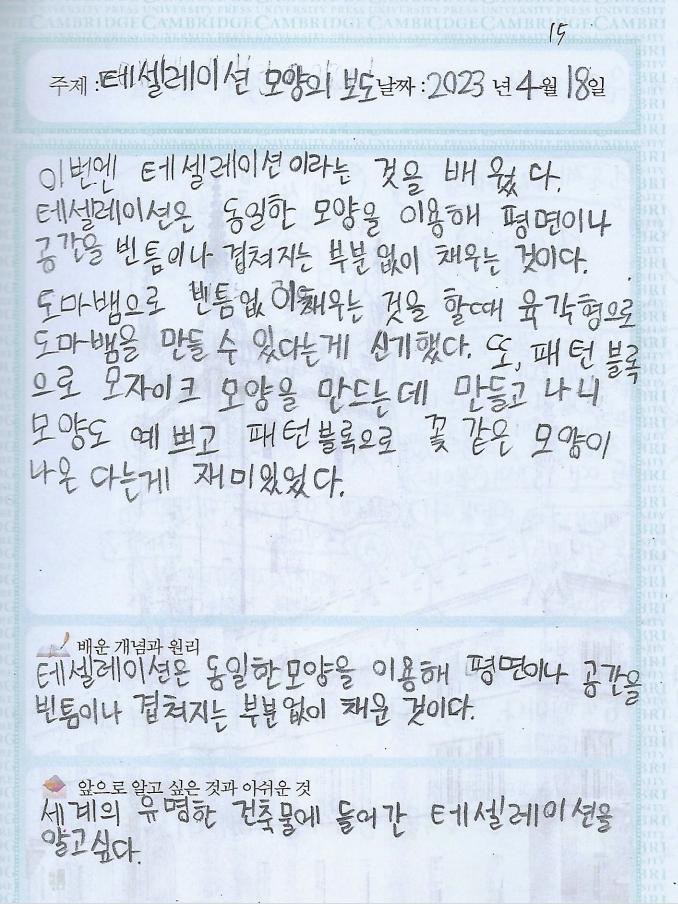 15
주제 : 테셀레이션 모양의 보도 날짜 : 2023 년 4월 18일
이번엔 테셀레이션이라는 것을 배웠다.
테셀레이션은 동일한 모양을 이용해 평면이나
공간을 빈틈이나 겹쳐지는 부분없이 채우는 것이다.
도마뱀으로 빈틈없이 채우는 것을 할때 육각형으로
도마뱀을 만들 수 있다는게 신기했다. 또, 패턴 블록
으로 모자이크 모양을 만드는데 만들고 나니
모양도 예쁘고 패턴블록으로 꽃 같은 모양이
나온 다는게 재미있었다.
배운 개념과 원리
테셀레이션은 동일한모양을 이용해 평면이나 공간을
빈틈이나 겹쳐지는 부분없이 채운 것이다.
앞으로 알고 싶은 것과 아쉬운 것
세계의 유명한 건축물에 들어간 테셀레이션을
알고싶다.